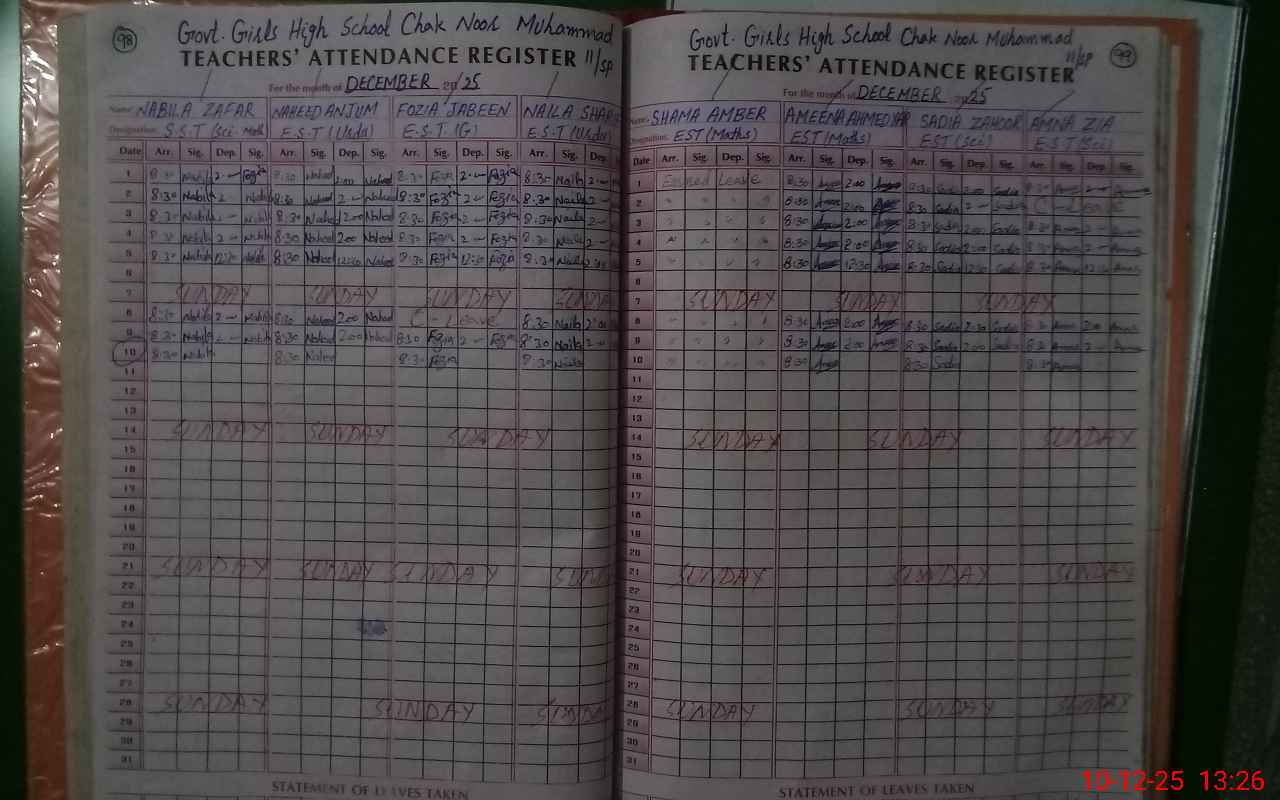 98
Govt. Girls High School Chak Noor Muhammad
TEACHERS' ATTENDANCE REGISTER 11/SP
For the month of DECEMBER 2025
Name: NABILA ZAFAR NAHEED ANJUM FOZIA JABEEN NAILA
Designation: S.S.T (Sci-Math) E.S.T (Urdu) E.S.T (G) E.S.T (Urdu)
Date Arr. Sig. Dep. Sig. Arr. Sig. Dep. Sig. Arr. Sig. Dep. Sig. Arr. Sig. Dep.
1 8:30 Nabila 2 8:30 Naheed 2:00 Naheed 8:30 Fozia 2 Fozia 8:30 Naila 2
2 8:30 Nabila 2 Nabila 8:30 Naheed 2 Naheed 8:30 Fozia 2 Fozia 8:30 Naila 2
3 8:30 Nabila 2 Nabila 8:30 Naheed 2:00 Naheed 8:30 Fozia 2 Fozia 8:30 Naila 2
4 8:30 Nabila 2 Nabila 8:30 Naheed 2:00 Naheed 8:30 Fozia 2 Fozia 8:30 Naila 2
5 8:30 Nabila 12:30 Nabila 8:30 Naheed 12:30 Naheed 8:30 Fozia 12:30 Fozia 8:30 Naila
6
7 SUNDAY SUNDAY SUNDAY SUNDAY
8 8:30 Nabila 2 Nabila 8:30 Naheed 2:00 Naheed C-Leave 8:30 Naila 2:00
9 8:30 Nabila 2 Nabila 8:30 Naheed 2:00 Naheed 8:30 Fozia 2 Fozia 8:30 Naila 2
10 8:30 Nabila 8:30 Naheed 8:30 Fozia 8:30 Naila
11
12
13
14 SUNDAY SUNDAY SUNDAY
15
16
17
18
19
20
21 SUNDAY SUNDAY SUNDAY SUNDAY
22
23
24
25
26
27
28 SUNDAY SUNDAY SUNDAY
29
30
31
STATEMENT OF LEAVES TAKEN
99
Govt. Girls High School Chak Noor Muhammad
11/SP
TEACHERS' ATTENDANCE REGISTER
For the month of DECEMBER 2025
Name: SHAMA AMBER AMEENA AHMEDYAR SADIA ZAHOOR AMNA ZIA
Designation: EST (Maths) EST (Maths) EST (Sci) E.S.T (Sci)
Date Arr. Sig. Dep. Sig. Arr. Sig. Dep. Sig. Arr. Sig. Dep. Sig. Arr. Sig. Dep. Sig.
1 Earned Leave 8:30 2:00 8:30 Sadia 2:00 Sadia 8:30 Amna 2
2 8:30 2:00 8:30 Sadia 2 Sadia C-Leave
3 8:30 2:00 8:30 Sadia 2:00 Sadia 8:30 Amna 2
4 8:30 2:00 8:30 Sadia 2:00 Sadia 8:30 Amna 2
5 8:30 12:30 8:30 Sadia 12:30 Sadia 8:30 Amna 12:30
6
7 SUNDAY SUNDAY SUNDAY
8 8:30 2:00 8:30 Sadia Sadia 8:30 Amna 2:00
9 8:30 2:00 8:30 Sadia 2:00 Sadia 8:30 Amna 2
10 8:30 8:30 Sadia 8:30 Amna
11
12
13
14 SUNDAY SUNDAY SUNDAY
15
16
17
18
19
20
21 SUNDAY SUNDAY SUNDAY
22
23
24
25
26
27
28 SUNDAY SUNDAY SUNDAY
29
30
31
STATEMENT OF LEAVES TAKEN
10-12-25 13:26